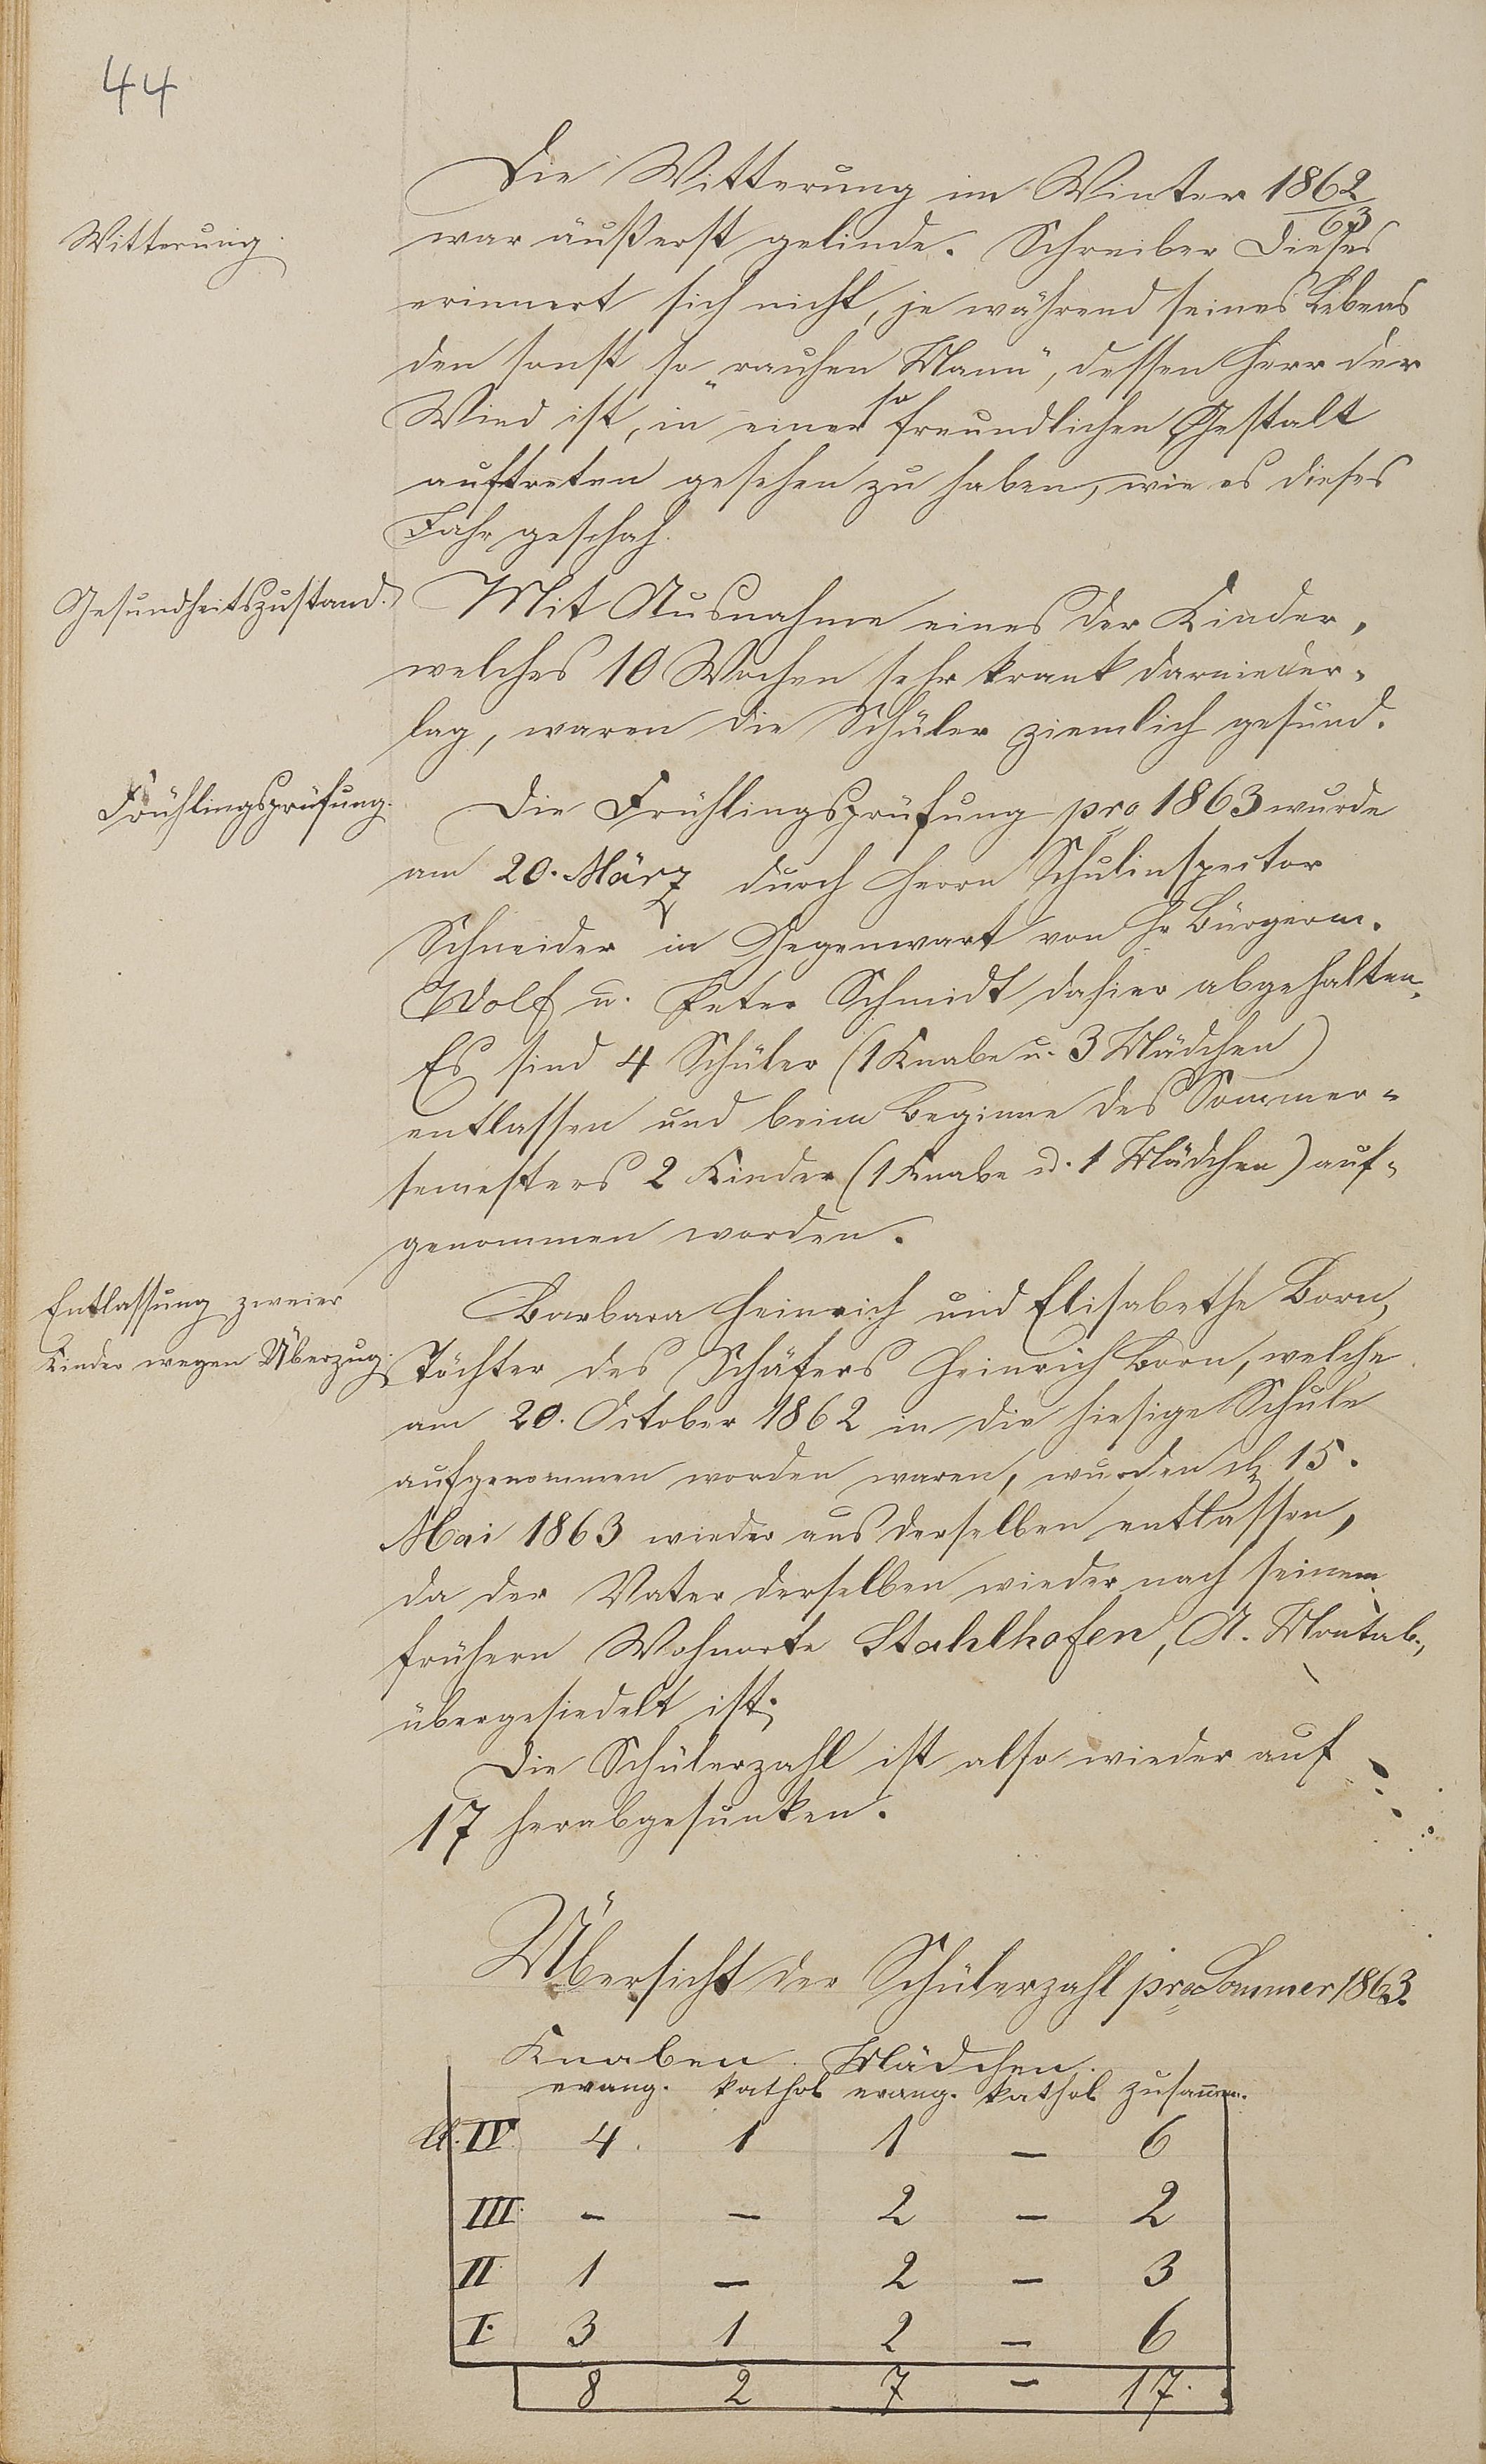 44
Die Witterung im Winter 1862/63
Witterung.
war äußerst gelinde. Schreiber Dieses
erinnert sich nicht, je während seines Lebens
den sonst so „rauhen Mann“, dessen Herr der
Wind ist, in einer so freundlichen Gestalt
auftreten gesehen zu haben, wie es dieses
Jahr geschah.
Gesundheitszustand.
Mit Ausnahme eines der Kinder,
welches 10 Wochen sehr krank darnieder-
lag, waren die Schüler ziemlich gesund.
Frühlingsprüfung.
Die Frühlingsprüfung pro 1863 wurde
am 20. März durch Herrn Schulinspector
Schneider in Gegenwart von Hr Bürgerm.
Wolf u. Peter Schmidt dahier abgehalten.
Es sind 4 Schüler (1 Knabe u. 3 Mädchen)
entlassen und beim Beginne des Sommer-
semesters 2 Kinder (1 Knabe u. 1 Mädchen) auf-
genommen worden.
Entlassung zweier
Kinder wegen Überzug.
Barbara Heinrich und Elisabethe Born,
Töchter des Schäfers Heinrich Born, welche
am 20. October 1862 in die hiesige Schule
aufgenommen worden waren, wurden d. 15.
Mai 1863 wieder aus derselben entlassen,
da der Vater derselben wieder nach seinem
frühern Wohnorte Stahlhofen, A. Montab.,
übergesiedelt ist.
Die Schülerzahl ist also wieder auf
17 herabgesunken.
Übersicht der Schülerzahl pro Sommer 1863.
Knaben. Mädchen.
evang. kathol evang. kathol zusamm.
Cl. IV. 4. 1 1 – 6
III. – – 2 – 2
II 1 – 2 – 3
I. 3 1 2 – 6
8 2 7 – 17.